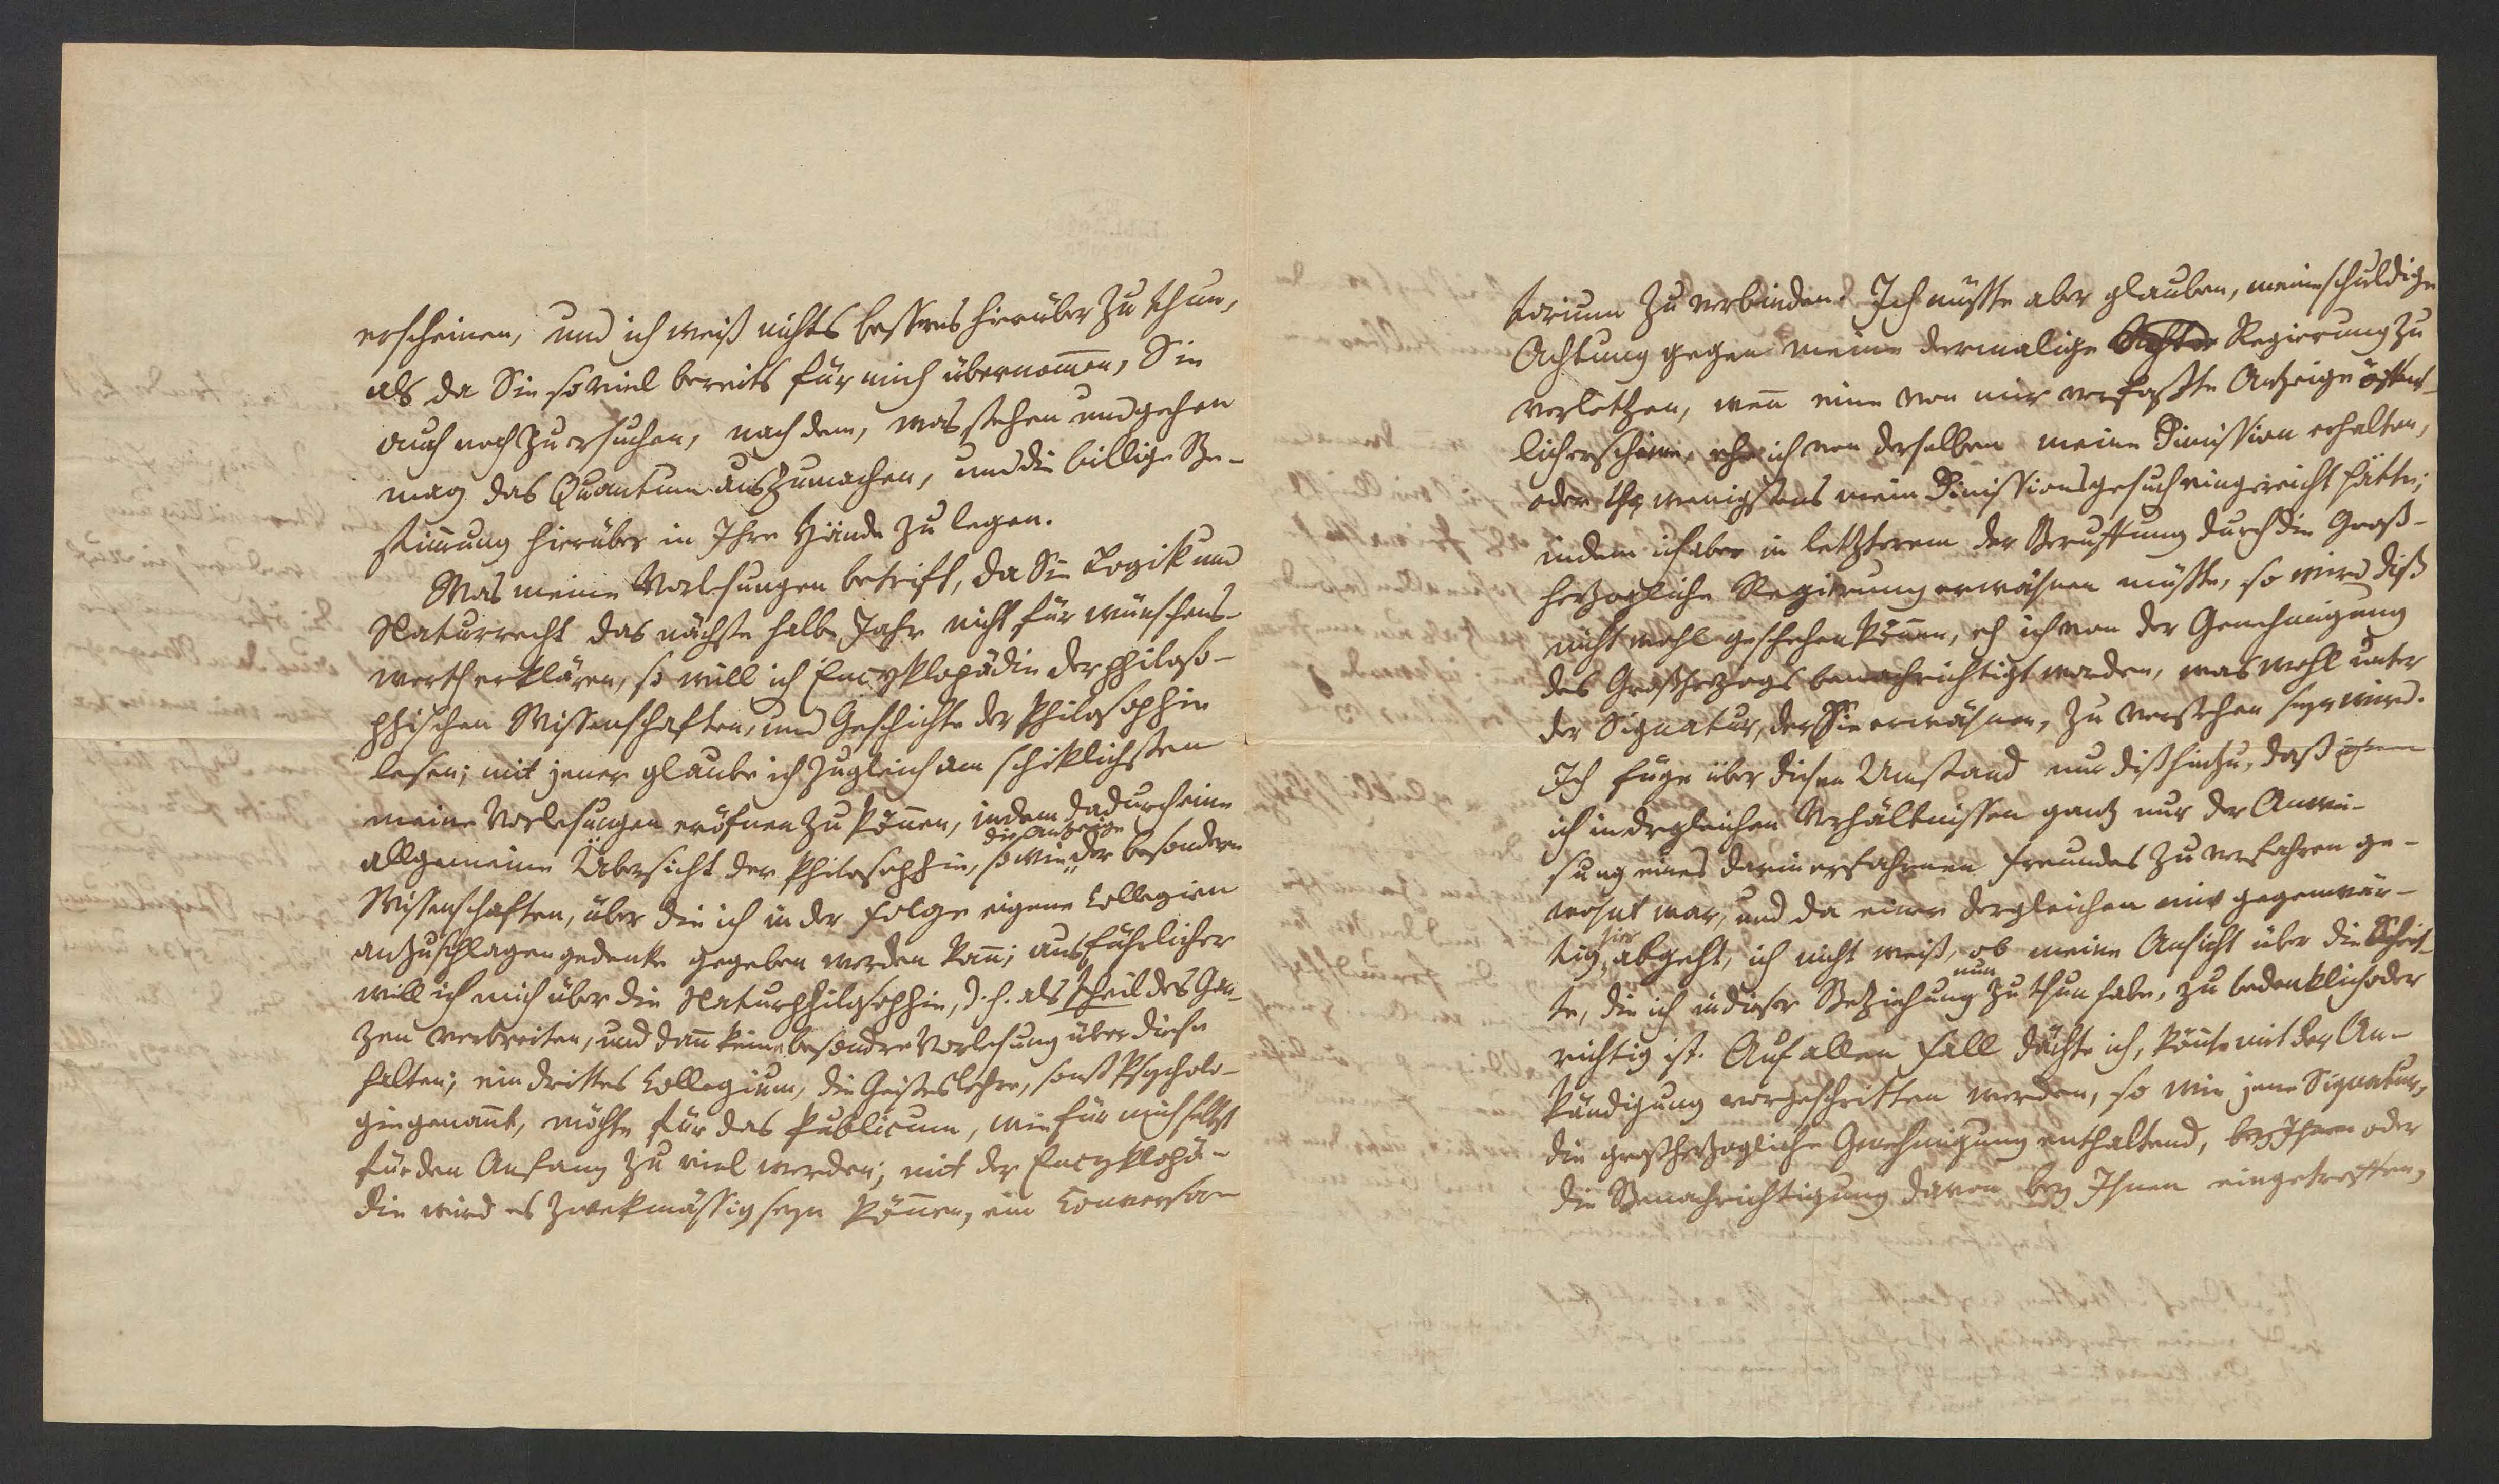 erscheinen, und ich weiß nichts bessres hierüber zu thun,
als da Sie so viel bereits für mich übernom̄en, Sie
auch noch zu ersuchen, nach dem, was stehen und gehen
mag das Quantum auszumachen, und die billige Be-
stim̄ung hierüber in Ihre Hände zu legen.
Was meine Vorlesungen betrift, da Sie Logik und
Naturrecht das nächste halbe Jahr nicht für wünschens-
werth erklären, so will ich Encyklopädie der philoso-
phischen Wissenschaften, und Geschichte der Philosophie
lesen; mit jener glaube ich zugleich am schiklichsten
meine Vorlesungen eröfnen zu kön̄en, indem dadurch eine
allgemeine Übersicht der Philosophie, so wie die Anzeige der besondern
Wissenschaften, über die ich in der Folge eigene Collegien
anzuschlagen gedenke gegeben werden kan̄; ausführlicher
will ich mich über die Naturphilosophie, d. h. als Theil des Gan-
zen verbreiten, und dan̄ keine besondre Vorlesung über diese
halten; ein drittes Collegium, die Geisteslehre, sonst Psycholo-
gie genan̄t, möchte für das Publicum, wie für mich selbst
für den Anfang zu viel werden; mit der Encyklopä-
die wird es zwekmässig seyn kön̄en, ein Conversa-
torium zu verbinden. Ich müßte aber glauben, meine schuldige
Achtung gegen meine dermalige Regierung zu
verletzen, wen̄ eine von mir verfaßte Anzeige öffent-
lich erschiene, ehe ich von derselben meine Dimission erhalten,
oder ihr wenigstens mein Dimissionsgesuch eingereicht hätte;
indem ich aber in letzterem der Beruffung durch die Groß-
herzogliche Regierung erwähnen müßte, so wird diß
nicht wohl geschehen kön̄en, eh ich von der Genehmigung
des Großherzogs benachrichtigt worden, was wohl unter
der Signatur, der Sie erwähnen, zu verstehen seyn wird.
Ich füge über diesen Umstand nur diß hinzu, daß
ich in dergleichen Verhältnissen ganz nur der Anwei-
sung eines darin erfahrnen Freundes zu verfahren ge-
wohnt war, und da einer dergleichen mir gegenwär-
tig hier abgeht, ich nicht weiß, ob meine Ansicht über die Schrit-
te, die ich in dieser Beziehung nun zu thun habe, zu bedenklich oder
richtig ist. Auf allen Fall dächte ich, kön̄te mit der An-
kündigung vorgeschritten werden, so wie jene Signatur,
die großherzogliche Genehmigung enthaltend, bey Ihnen oder
die Benachrichtigung davon bey Ihnen eingetroffen,